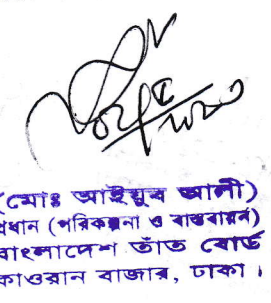 (মোঃ আইয়ুব আলী)
প্রধান (পরিকল্পনা ও বাস্তবায়ন)
বাংলাদেশ তাঁত বোর্ড
কাওরান বাজার, ঢাকা।